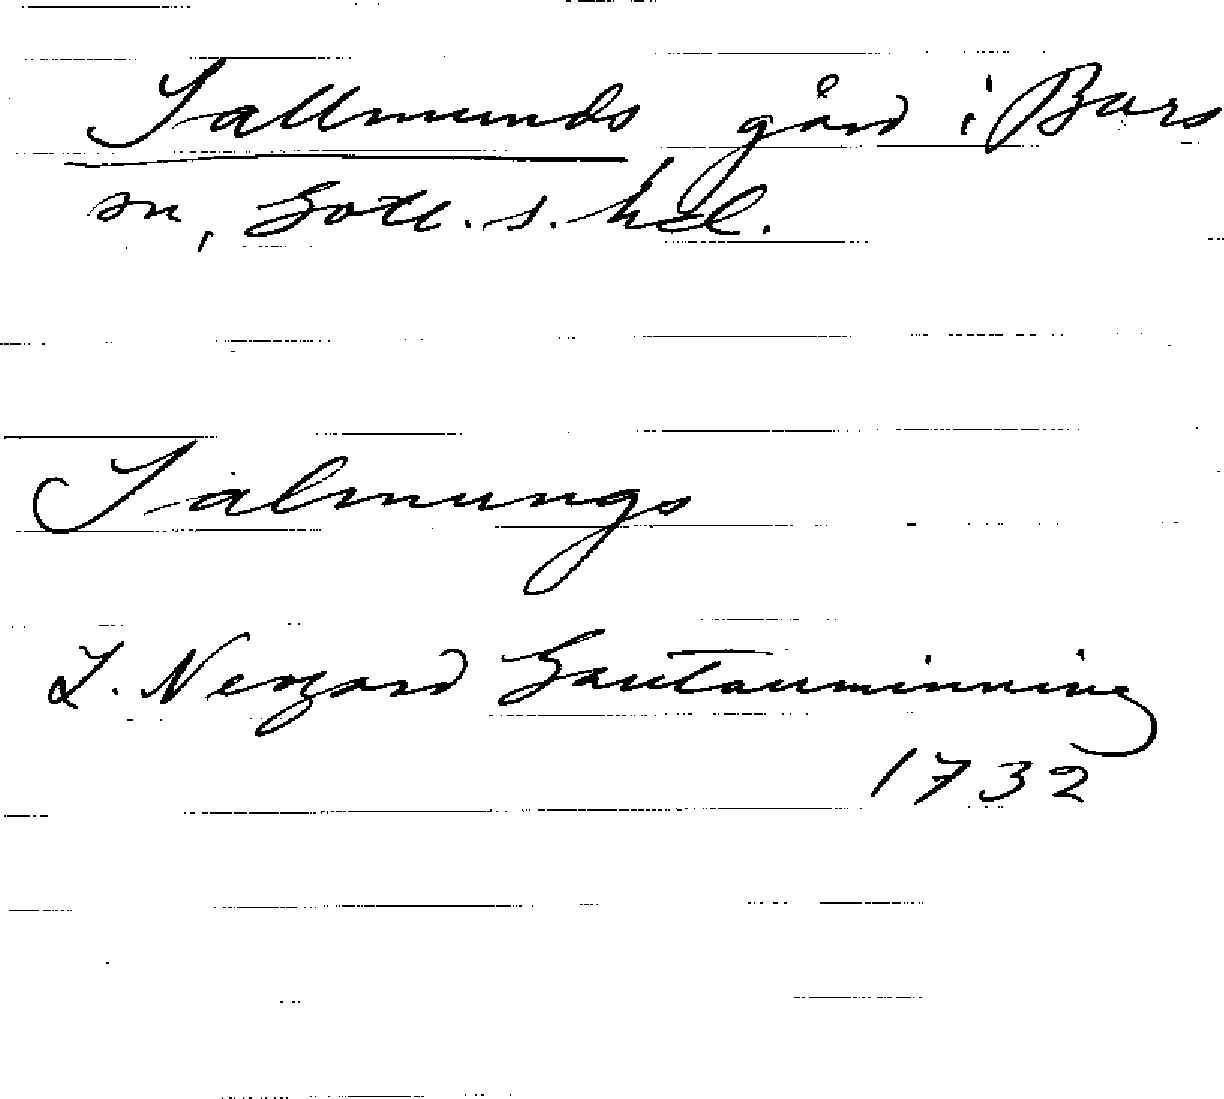 Tallmunds gård i Burs
sn, Gotl. s. hd.
Talmungs
L. Neogard Gautauminning
1732